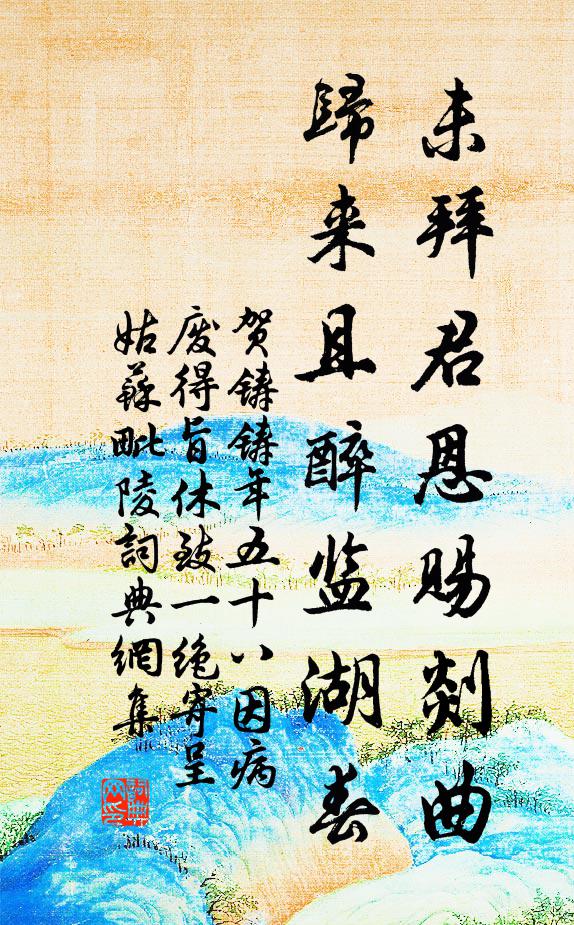 未拜君恩赐剡曲
歸来且醉监湖春
贺鑄鑄年五十八因病
废得旨休致一绝寄呈
姑蘇毗陵詞典網集